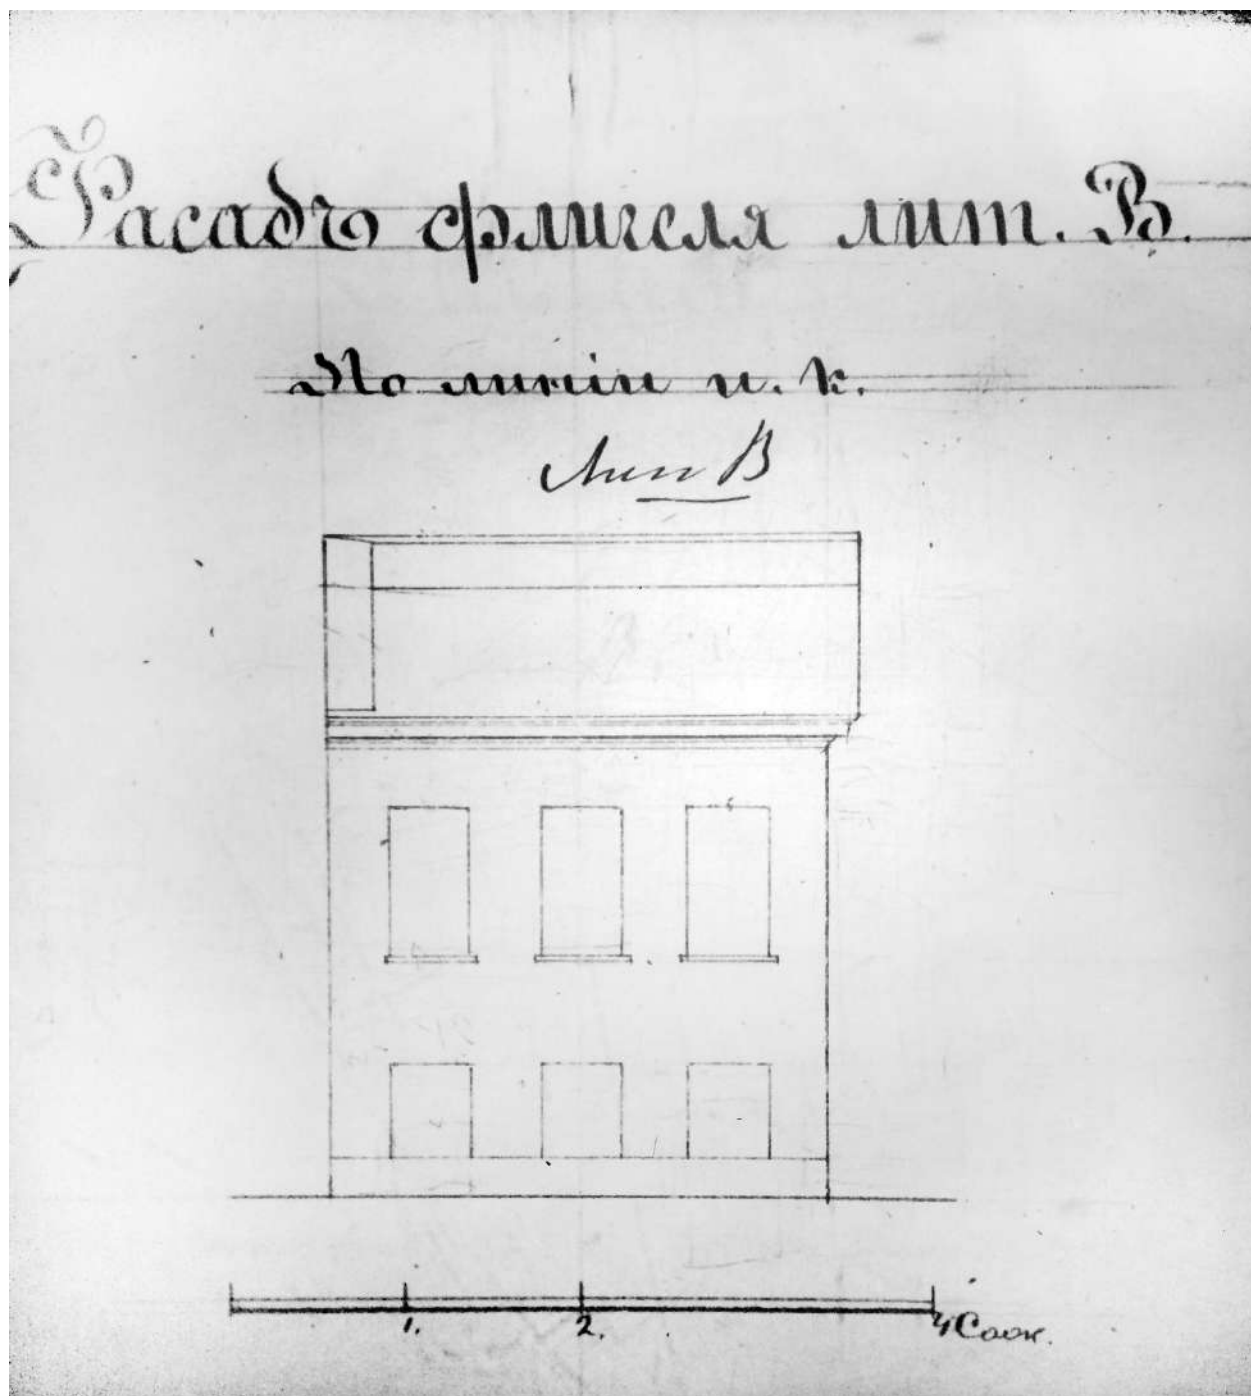 Фасадъ флигеля лит. В.
По линіи и. к.
Лит В
1. 2. 4 Саж.